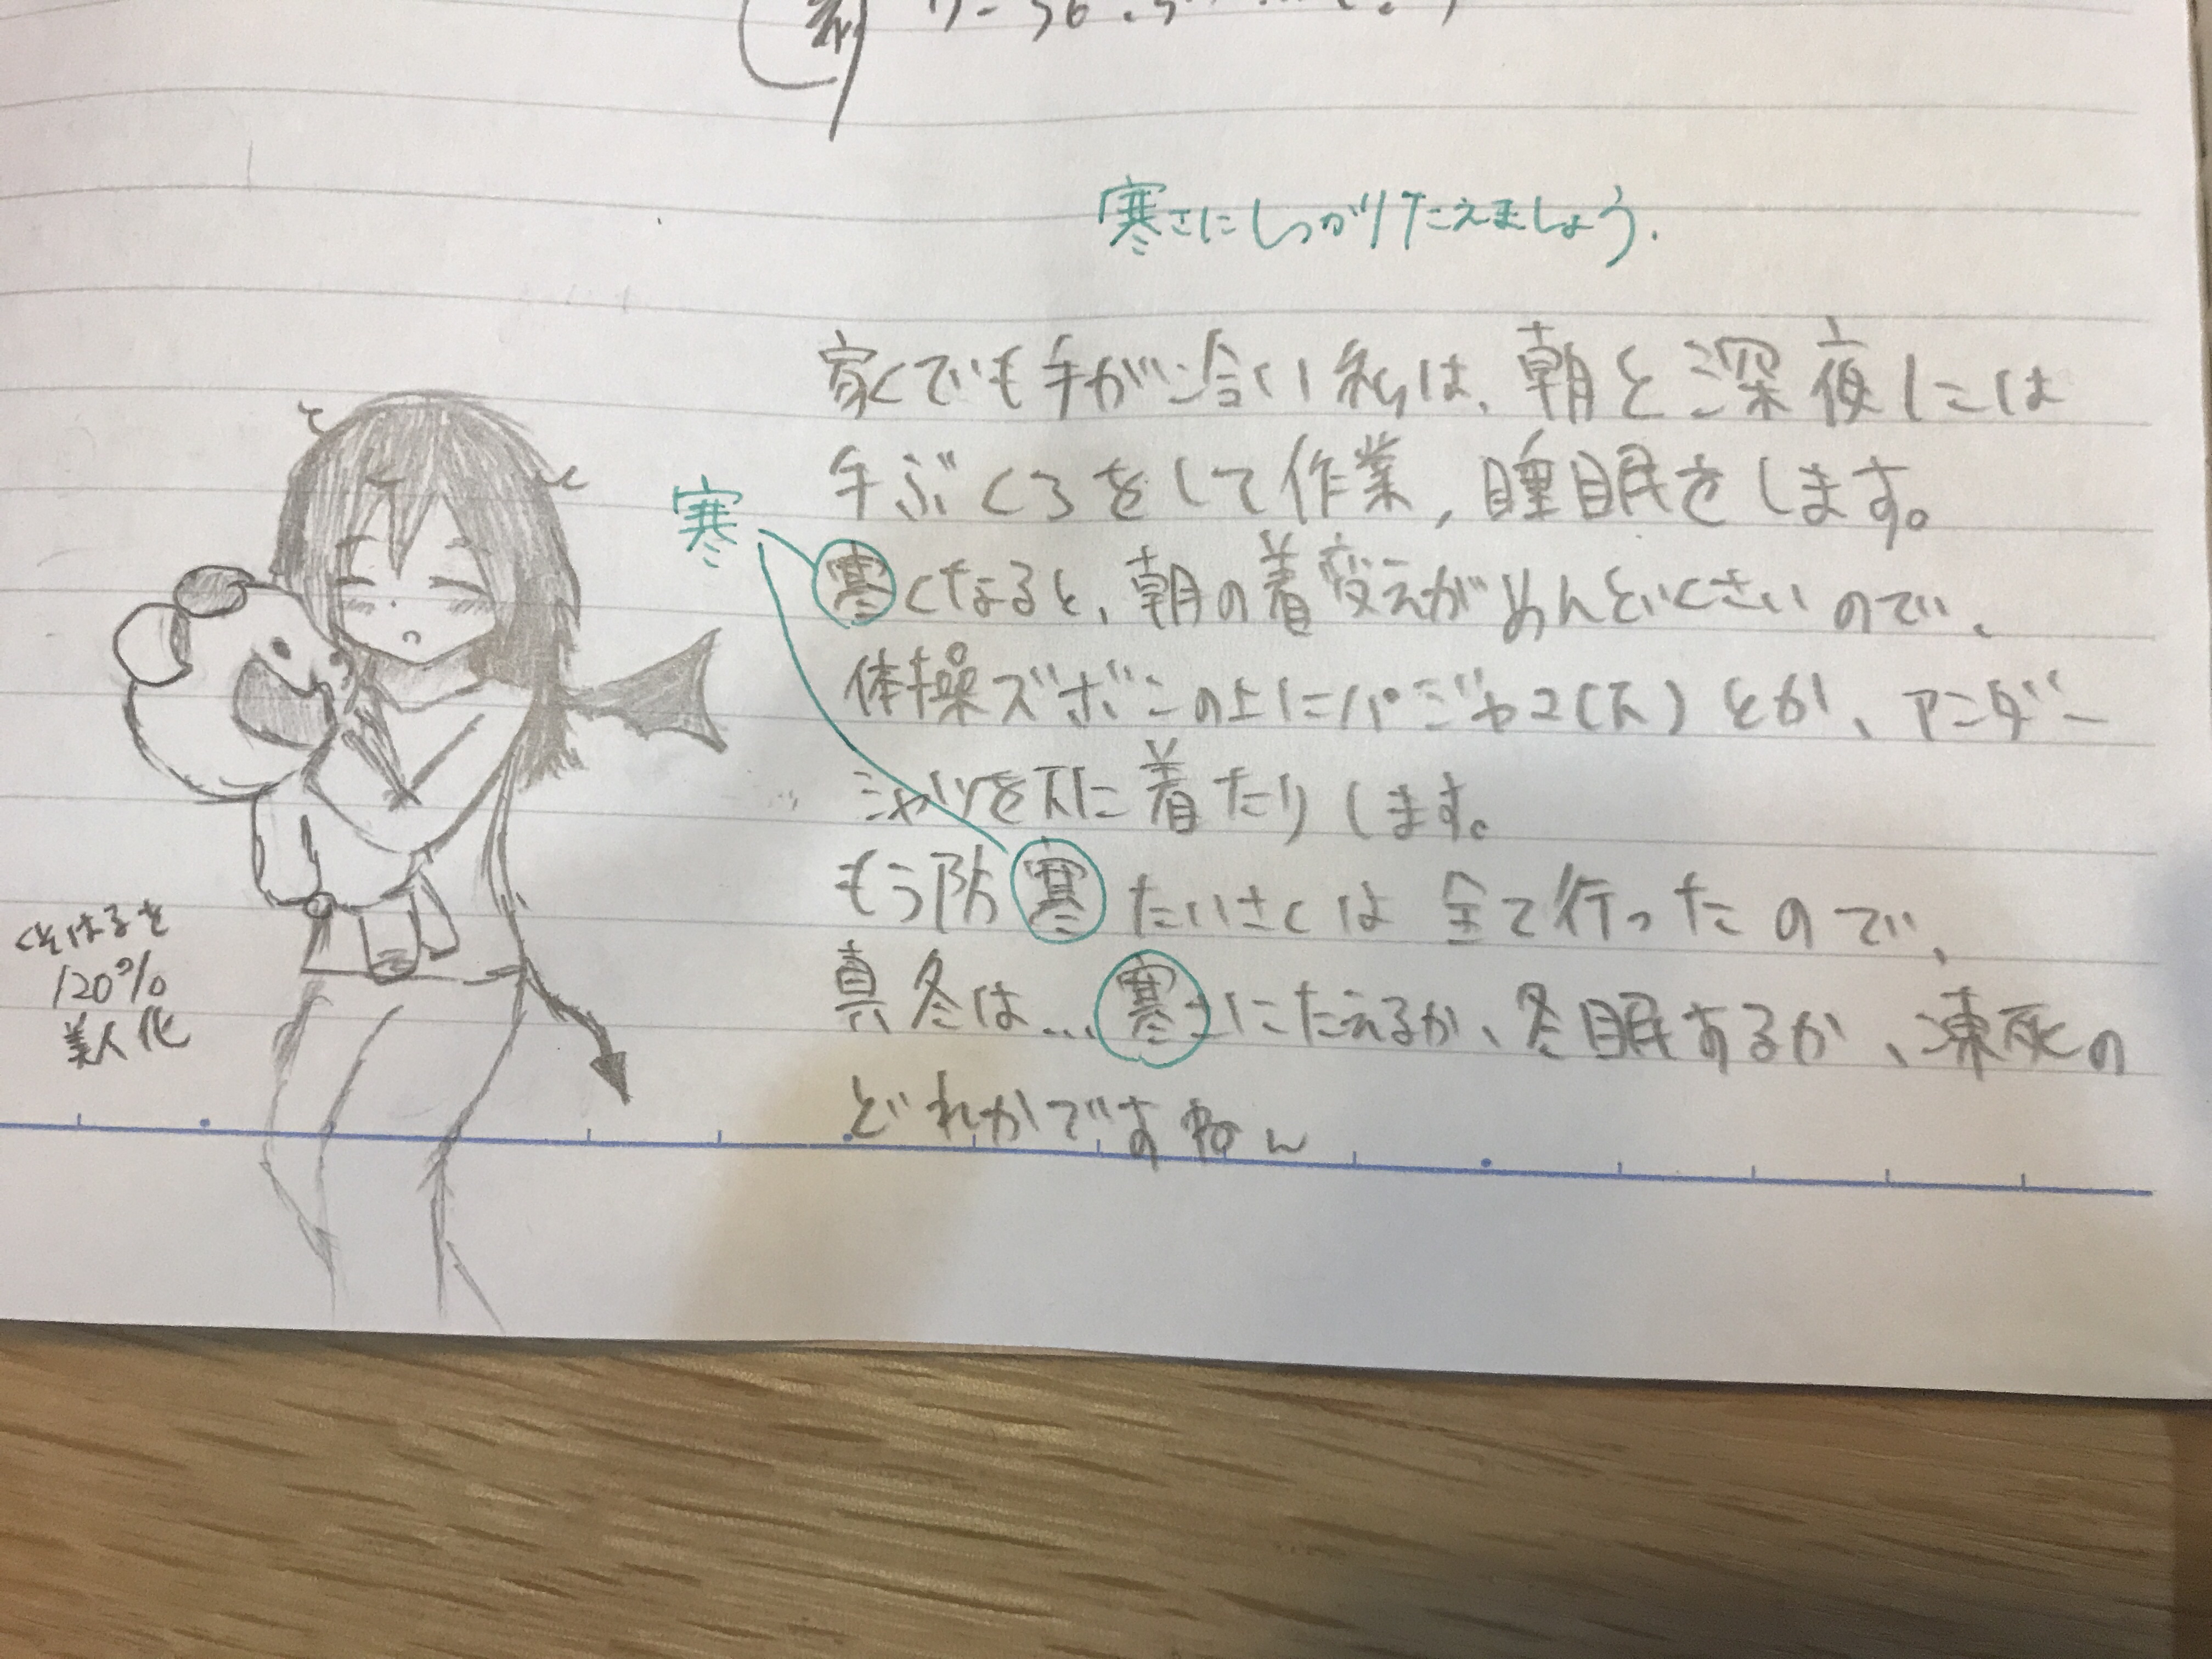 寒さにしっかりたえましょう.
家でも手が冷い私は、朝と深夜には
手ぶくろをして作業,睡眠をします。
寒
寒くなると、朝の着変えがめんどくさいので、
体操ズボンの上にパジャマ(下)とか、アンダー
シャツを下に着たりします。
もう防寒たいさくは全て行ったので、
真冬は…寒さにたえるか、冬眠するか、凍死の
どれかですねん
120%
美人化